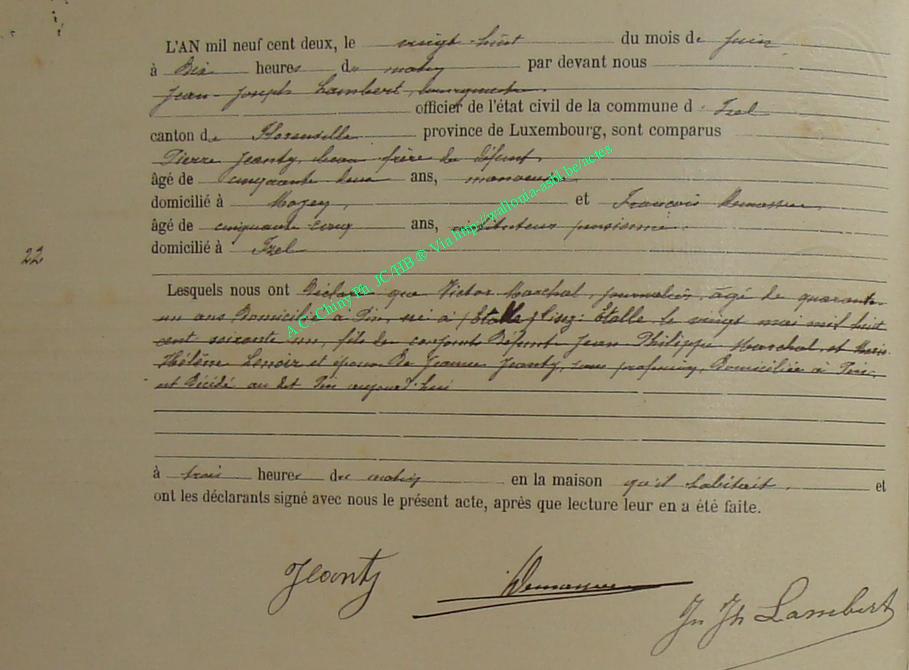 L'AN mil neuf cent deux, le vingt-huit du mois de juin
à Dix heures du matin par devant nous
Jean-Joseph Lambert, bourgmestre
officier de l'état civil de la commune d' Izel
canton de Florenville province de Luxembourg, sont comparus
Pierre Jeanty, beau-frère du défunt,
âgé de cinquante deux ans, manoeuvre
domicilié à Moyen, et François
âgé de cinquante cinq ans, instituteur pensionné
domicilié à Izel
22
Lesquels nous ont Déclaré que Victor Marchal, journalier, âgé de quarante
un ans Domicilié à Pin, né à Etalle le vingt mai mil huit
cent soixante un, fils des conjoints Défunt Jean Philippe Marchal, et Marie
Hélène Lenoir et époux De Jeanne Jeanty, sans profession, Domiciliée à Pin,
est Décédé au dit Pin aujourd'hui
à trois heures du matin en la maison qu'il habitait, et
ont les déclarants signé avec nous le présent acte, après que lecture leur en a été faite.
Jeanty
Jn Jh Lambert
A.C. Chiny Ph. JC/HB ® Via http://wallonia-asbl.be/actes